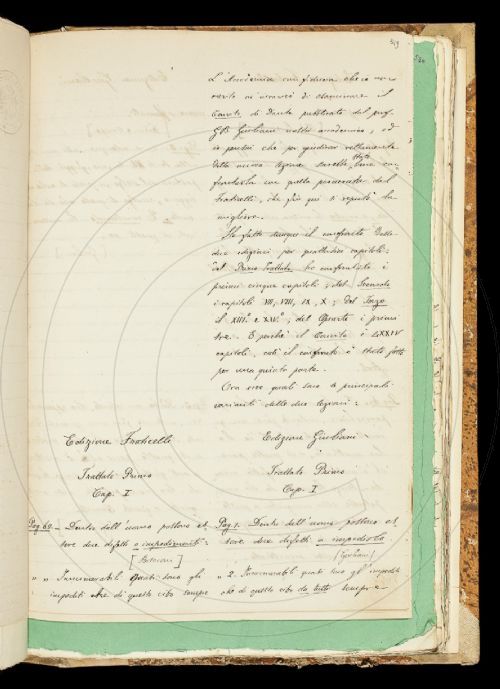 519
L'Accademia
di esaminare il
Convito di Dante pubblicato dal prof.
GB Giuliani nostro accademico, ed
io pensai che per giudicar rettamente
della nuova lezione sarebbe stato bene con-
frontarla con quella procurata dal
Fraticelli, che fin qui è reputata la
migliore.
Ho fatto dunque il confronto delle
due edizioni per quattordici capitoli:
del Primo Trattato ho confrontato i
primi cinque capitoli; del Secondo
i capitoli VII, VIII, IX, X; del Terzo
il XIII° e XIV°; del Quarto i primi
tre. E perchè il Convito è LXXIV
capitoli, così il confronto è stato fatto
per una quinta parte.
Ora ecco quali sono le principali
varianti delle due lezioni:
Edizione Fraticelli
Edizione Giuliani
Trattato Primo
Trattato Primo
Cap. I
Cap. I
Pag. 62. - Dentro dall'uomo possono es-
sere due difetti e impedimenti.
" " Innumerabili quasi sono gli
impediti che di questo cibo sempre
Pag. 1. Dentro dall'uomo possono es-
sere due difetti a impedirlo
(Giuliani)
" 2. Innumerabili quasi sono gl'impediti
che di questo cibo da tutti sempre